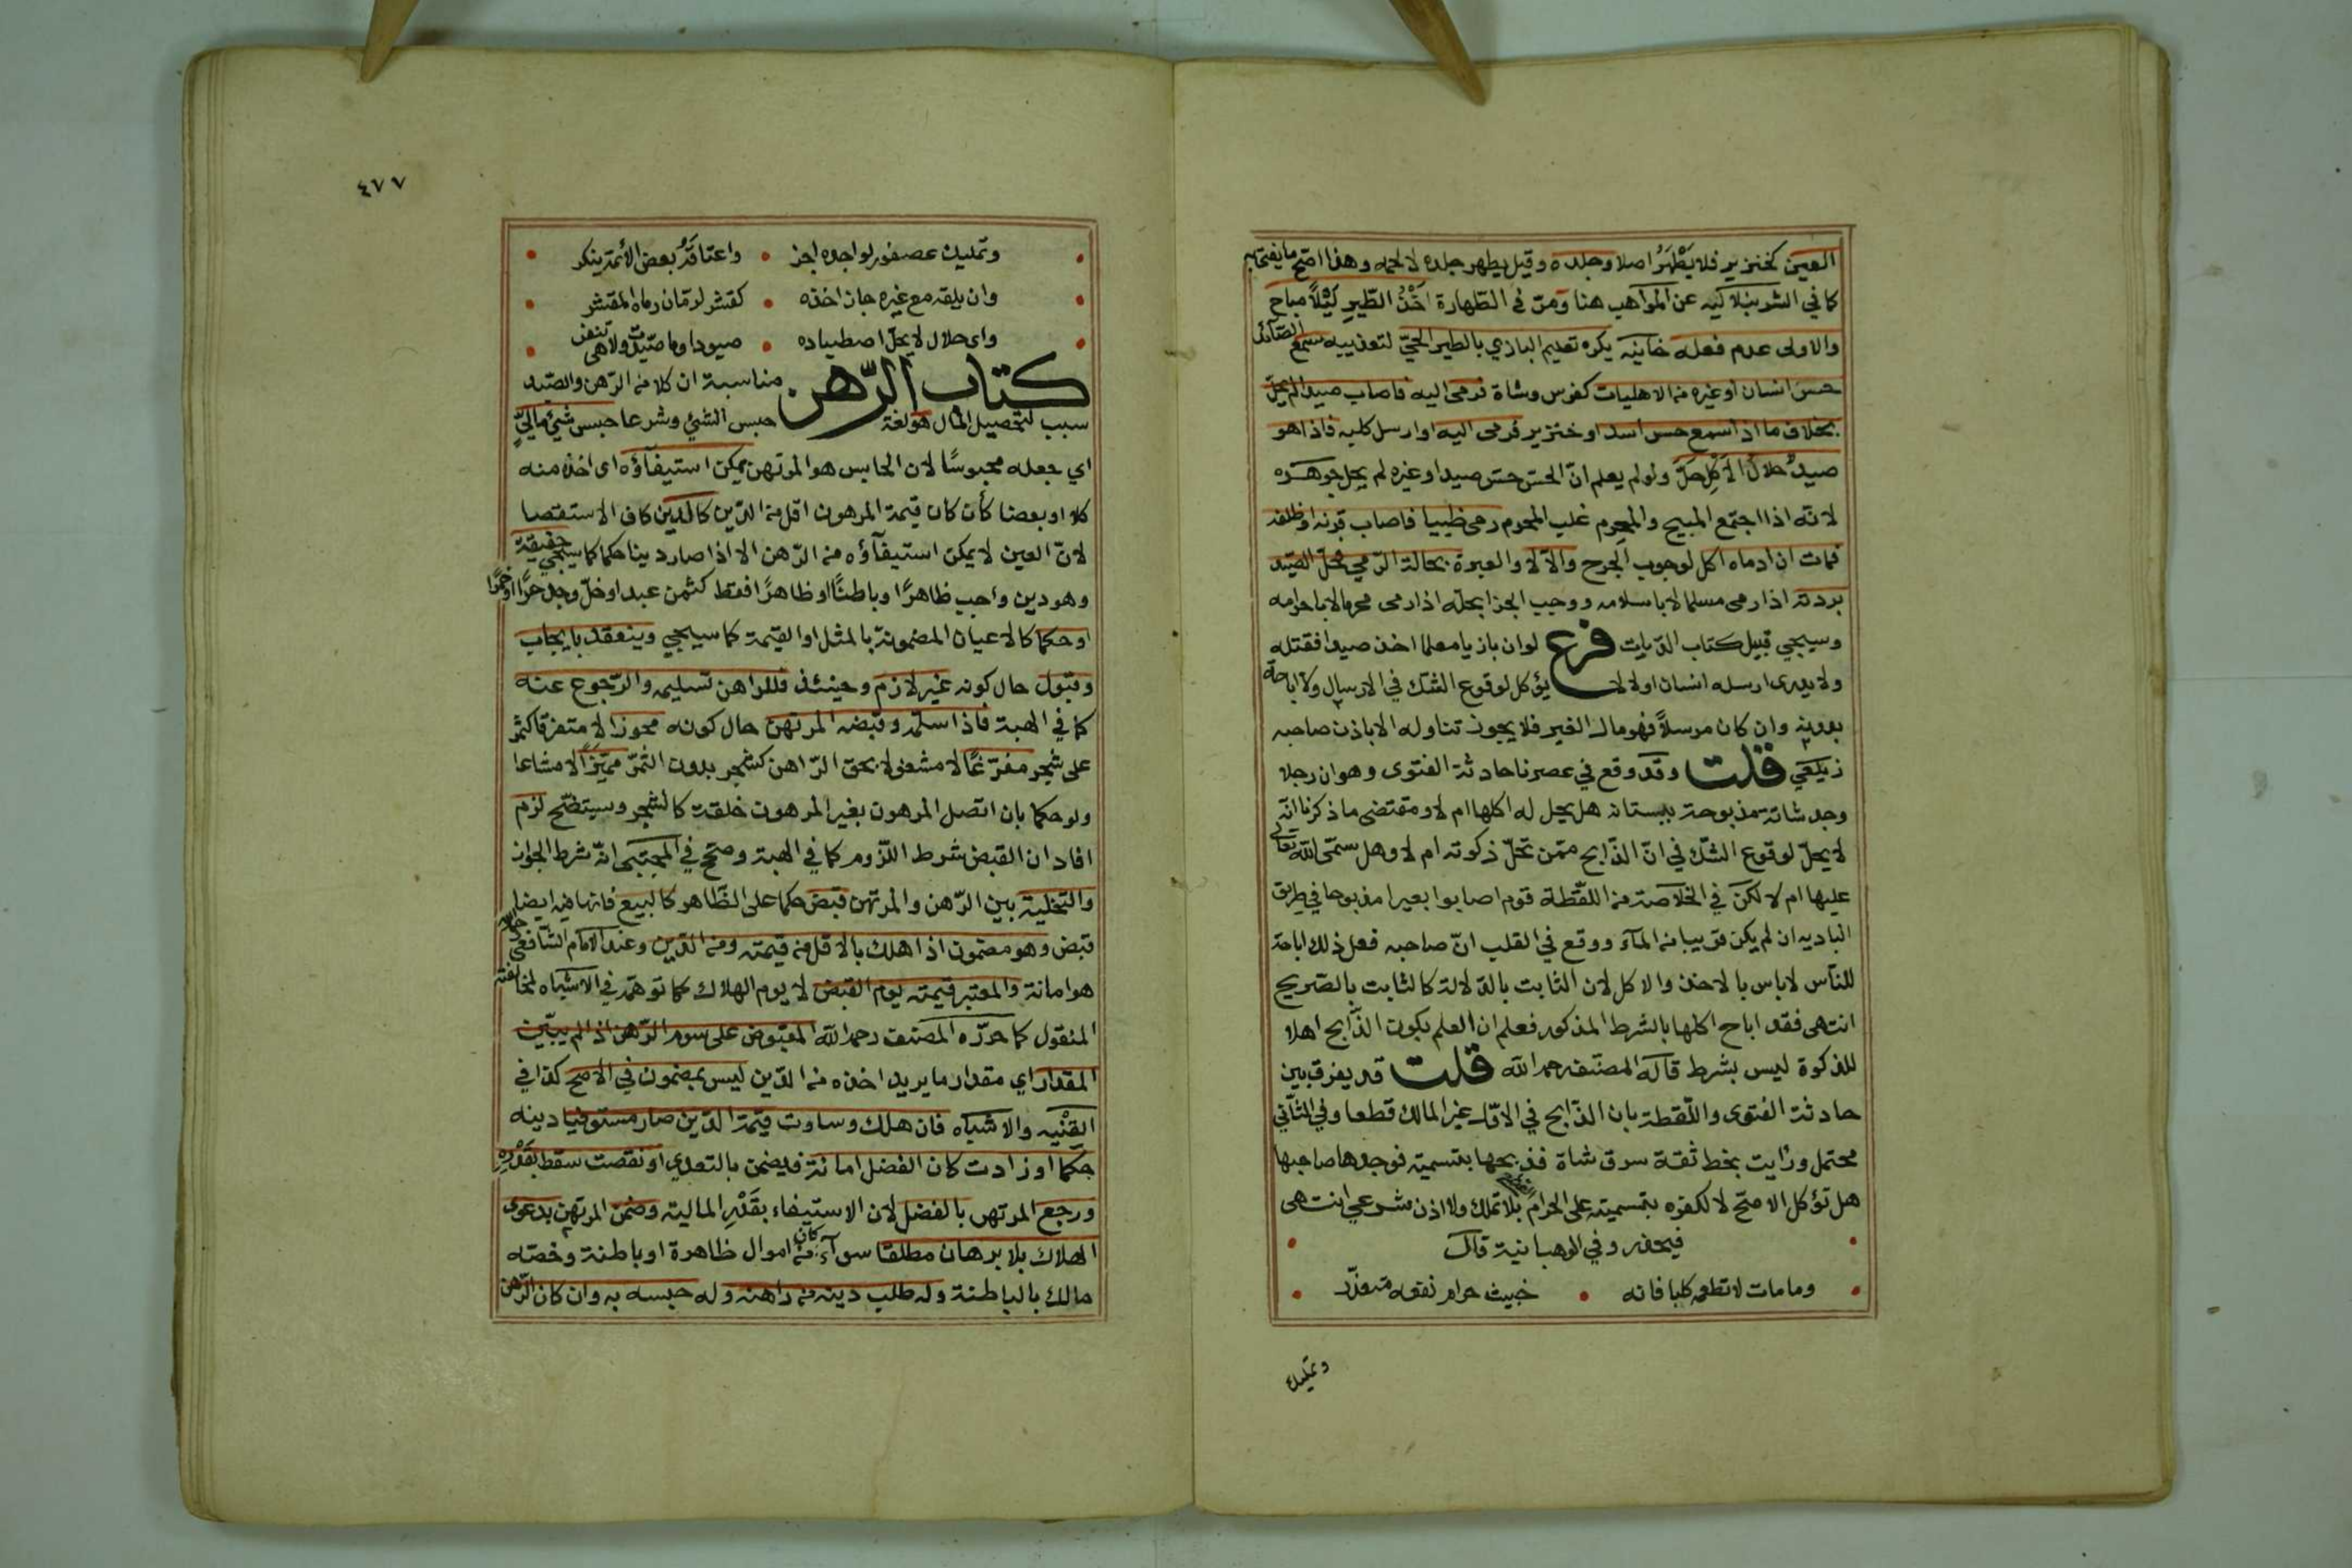 العين كخنزير فلا يَطْهُرُ اصلا وجلده وقيل يطهر جلده لا لحمه وهذا اصح ما يفتى به
كما في الشرنبلاليه عن المواهب هنا ومرّ في الطهارة اَخْذُ الطّيرِ لَيْلاً مباح
والاولى عدم فعله خانيه يكره تعليم البازي بالطير الحيّ لتعذيبه سمع الصّائد
حسّ انسان او غيره من الاهليات كفرس وشاة فرمى اليه فاصاب صيدا لم يحلّ
بخلاف ما اذا سمع حس اسد او خنزير فرمى اليه او ارسل كلبه فاذا هو
صيدٌ حلالُ الاَكْلِ حلّ ولو لم يعلم انّ الحسّ حسّ صيد او غيره لم يحل جوهره
لانّه اذا اجتمع المبيح والمحرم غلب المحرم رمى ظبيا فاصاب قرنه او ظلفه
فمات ان ادماه اكل لوجوب الجرح والاّ لا والعبرة بحالة الرّمي فحلّ الصّيد
بردته اذا رمى مسلما لا باسلامه ووجب الجزا بحلّه اذا رمى محرما لا باحرامه
وسيجي قبيل كتاب الدّيات فرع لو ان بازيا معلما اخذ صيدا فقتله
ولا يدرى ارسله انسان او لا لا يؤكل لوقوع الشك في الارسال ولا اباحة
بدونه وان كان مرسلاً فهو مال الغير فلا يجوز تناوله الا باذن صاحبه
زيلعي قلت وقد وقع في عصرنا حادثة الفتوى وهو ان رجلا
وجد شاته مذبوحة ببستانه هل يحل له اكلها ام لا ومقتضى ما ذكرنا انّه
لا يحلّ لوقوع الشّك في انّ الذّابح ممّن تحلّ ذكوته ام لا وهل سمّى الله تعالى
عليها ام لا لكن في الخلاصة من اللّقطة قوم اصابوا بعيرا مذبوحا في طريق
الباديه ان لم يكن قريبا من المآء ووقع في القلب انّ صاحبه فعل ذلك اباحة
للنّاس لاباس بالاخذ والاكل لان الثابت بالدّلالة كالثابت بالصّريح
انتهى فقد اباح اكلها بالشرط المذكور فعلم ان العلم بكون الذّابح اهلا
للذكوة ليس بشرط قاله المصنف رحمه الله قلت قد يفرق بين
حادثة الفتوى واللّقطة بان الذّابح في الاوّل غير المالك قطعا وفي الثّاني
محتمل ورايت بخط ثقة سرق شاة فذبحها بتسمية فوجدها صاحبها
هل تؤكل الاصحّ لا لكفره بتسميته على الحرام بلا تملك ولا اذن شرعي انتهى
فيحذر وفي الوهبانية قال
وما مات لا تطعمه كلبا فانه • خبيث حرام نفعه متعذّر
وتمليك
٤٧٧
وتمليك عصفور لواجده اجز • واعتاقهُ بعض الائمة ينكر
وان يلقه مع غيره جاز اخذه • كقشر لرمّان رماه المقشر
واى حلال لا يحلّ اصطياده • صيودا وما صيدت ولا هي تنفر
كتاب الرّهن مناسبة ان كلا من الرّهن والصّيد
سبب لتحصيل المال هو لغة حبس الشئ وشرعا حبس شئ ماليّ
اي جعله محبوسًا لان الحابس هو المرتهن يمكن استيفآؤه اى اخذه منه
كلا او بعضا كأن كان قيمة المرهون اقل من الدّين كالدّين كاف الاستقصا
لانّ العين لا يمكن استيفآؤه من الرّهن الا اذا صار دينا حكما كما سيجي حقيقة
وهو دين واجب ظاهرًا وباطنًا او ظاهرًا فقط كثمن عبد او خلّ وجد حرًّا او خمرًا
او حكما كالاعيان المضمونة بالمثل او القيمة كما سيجي وينعقد بايجاب
وقبول حال كونه غير لازم وحينئذ فللراهن تسليمه والرّجوع عنه
كما في الهبة فاذا سلّمه وقبضه المرتهن حال كونه محوزا لا متفرقا كثمر
على شجر مفرّغًا لا مشغولا بحق الرّاهن كشجر بدون الثّمر مميّزًا لا مشاعا
ولو حكما بان اتّصل المرهون بغير المرهون خلقة كالشجر وسيتضّح لزم
افاد ان القبض شرط اللّزوم كما في الهبة وصحّح في المجتبى انّه شرط الجواز
والتخلية بين الرّهن والمرتهن قبض حكما على الظّاهر كالبيع فانها فيه ايضا
قبض وهو مضمون اذا هلك بالاقل من قيمته ومن الدّين وعند الامام الشّافعي
هو امانة والمعتبر قيمته يوم القبض لا يوم الهلاك كما توهّمه في الاشباه لمخالفته
المنقول كما حرّره المصنف رحمه الله المقبوض على سوم الرّهن اذا لم يبيّن
المقدار اي مقدار ما يريد اخذه من الدّين ليس بمضمون في الاصح كذا في
القنْيه والاشباه فان هلك وساوت قيمة الدّين صار مستوفيا دينه
حكما او زادت كان الفضل امانة فيضمن بالتعدي او نقصت سقط بقَدْرِهِ
ورجع المرتهن بالفضل لان الاستيفاء بقَدْرِ المالية وضمن المرتهن بدعوى
الهلاك بلا برهان مطلقا سوآء كان من اموال ظاهرة او باطنة وخصّه
مالك بالباطنة وله طلب دينه من راهنه وله حبسه به وان كان الرّهن